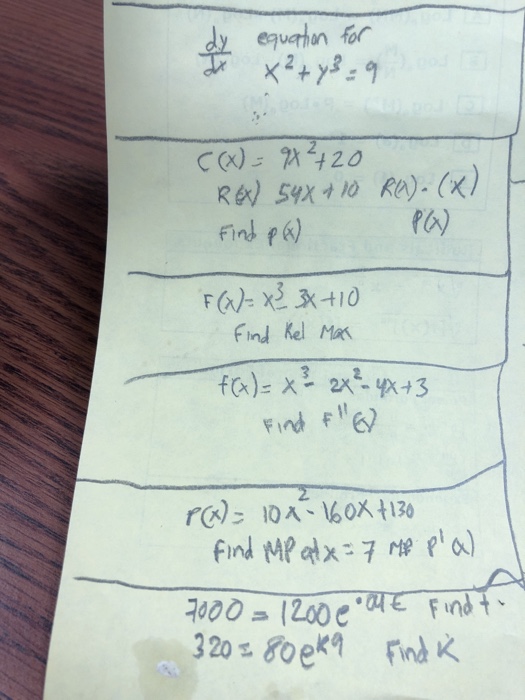 dy/dx equation for
x² + y³ = 9
C(x) = 9x² + 20
R(x) 54x + 10 R(x) - (x)
Find p(x) P(x)
F(x) = x³ - 3x + 10
Find Rel Max
f(x) = x³ - 2x² - 4x + 3
Find F''(x)
P(x) = 10x² - 160x + 130
Find MP at x = 7 MP P'(x)
7000 = 1200e^.04t Find t.
320 = 80e^k9 Find K